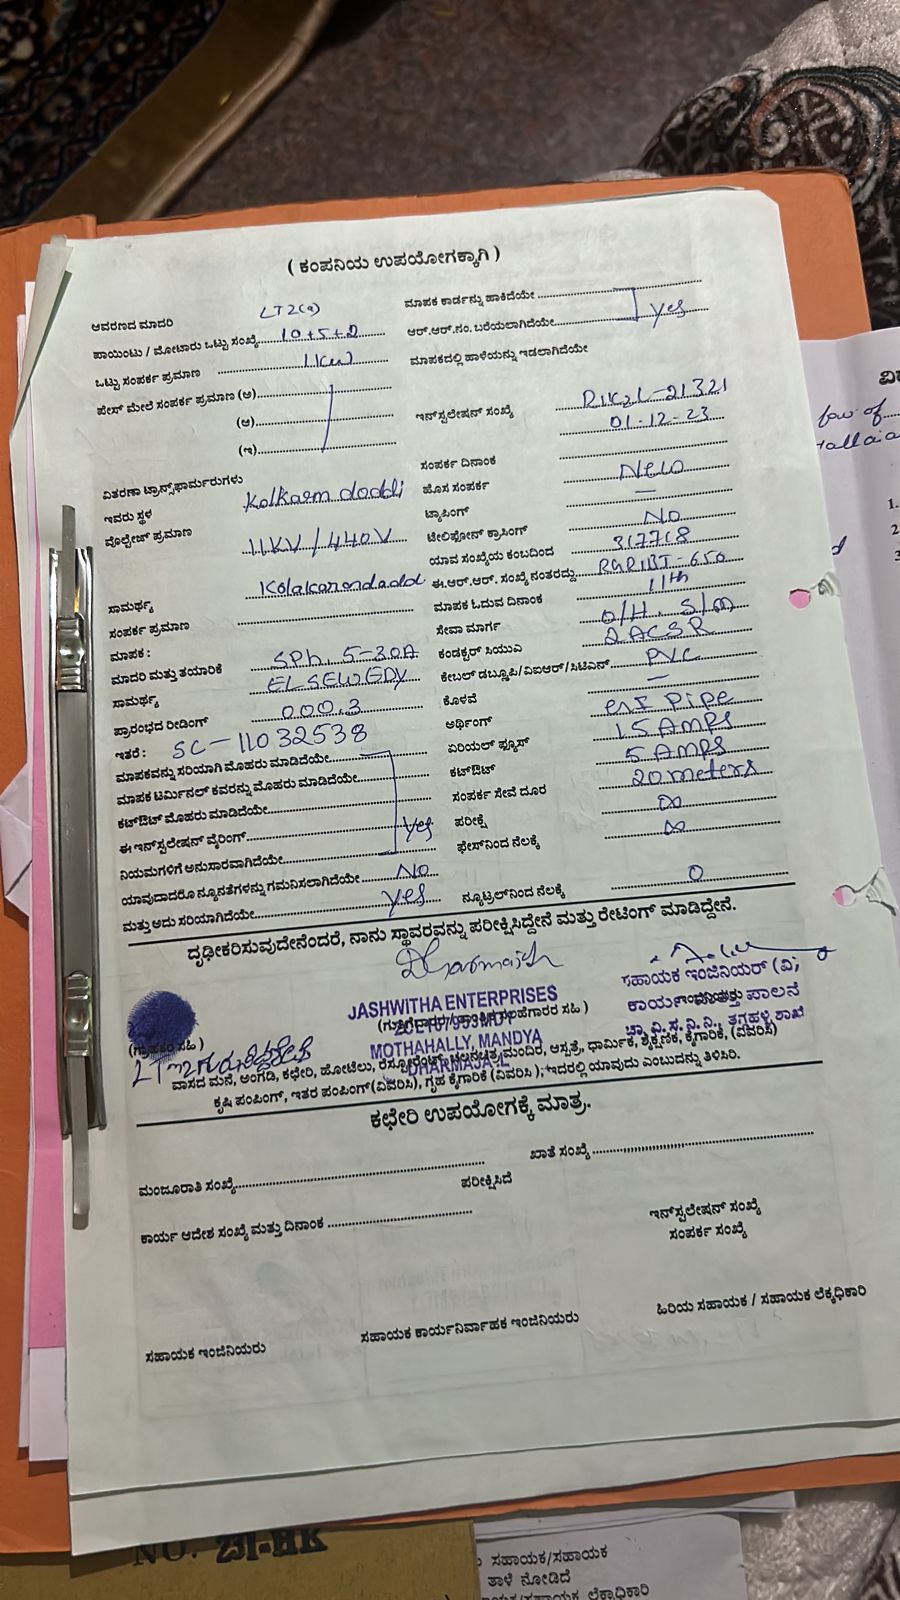 ( ಕಂಪನಿಯ ಉಪಯೋಗಕ್ಕಾಗಿ )
ಆವರಣದ ಮಾದರಿ LT2(a)
ಪಾಯಿಂಟು / ಮೋಟಾರು ಒಟ್ಟು ಸಂಖ್ಯೆ 10+5+2
ಒಟ್ಟು ಸಂಪರ್ಕ ಪ್ರಮಾಣ 1KW
ಫೇಸ್ ಮೇಲೆ ಸಂಪರ್ಕ ಪ್ರಮಾಣ (ಅ)
(ಆ)
(ಇ)
ವಿತರಣಾ ಟ್ರಾನ್ಸ್‌ಫಾರ್ಮರುಗಳು
ಇವರು ಸ್ಥಳ
ವೊಲ್ಟೇಜ್ ಪ್ರಮಾಣ 11KV/440V
ಸಾಮರ್ಥ್ಯ
ಸಂಪರ್ಕ ಪ್ರಮಾಣ
ಮಾಪಕ :
ಮಾದರಿ ಮತ್ತು ತಯಾರಿಕೆ SPh. 5-30A
ಸಾಮರ್ಥ್ಯ
ಪ್ರಾರಂಭದ ರೀಡಿಂಗ್ 000.3
ಇತರೆ : SC-11032538
ಮಾಪಕವನ್ನು ಸರಿಯಾಗಿ ಮೊಹರು ಮಾಡಿದೆಯೇ
ಮಾಪಕ ಟರ್ಮಿನಲ್ ಕವರನ್ನು ಮೊಹರು ಮಾಡಿದೆಯೇ
ಕಟ್‌ಔಟ್ ಮೊಹರು ಮಾಡಿದೆಯೇ
ಈ ಇನ್‌ಸ್ಟಲೇಷನ್ ವೈರಿಂಗ್ Yes
ನಿಯಮಗಳಿಗೆ ಅನುಸಾರವಾಗಿದೆಯೇ
ಯಾವುದಾದರೂ ನ್ಯೂನತೆಗಳನ್ನು ಗಮನಿಸಲಾಗಿದೆಯೇ No
ಮತ್ತು ಅದು ಸರಿಯಾಗಿದೆಯೇ Yes
ಮಾಪಕ ಕಾರ್ಡನ್ನು ಹಾಕಿದೆಯೇ
ಆರ್.ಆರ್.ನಂ. ಬರೆಯಲಾಗಿದೆಯೇ Yes
ಮಾಪಕದಲ್ಲಿ ಹಾಳೆಯನ್ನು ಇಡಲಾಗಿದೆಯೇ
ಇನ್‌ಸ್ಟಲೇಷನ್ ಸಂಖ್ಯೆ
01-12-23
ಸಂಪರ್ಕ ದಿನಾಂಕ
ಹೊಸ ಸಂಪರ್ಕ New
ಟ್ಯಾಪಿಂಗ್ —
ಟೆಲಿಫೋನ್ ಕ್ರಾಸಿಂಗ್ No
ಯಾವ ಸಂಖ್ಯೆಯ ಕಂಬದಿಂದ
ಈ.ಆರ್.ಆರ್. ಸಂಖ್ಯೆ ನಂತರದ್ದು
ಮಾಪಕ ಓದುವ ದಿನಾಂಕ 11th
ಸೇವಾ ಮಾರ್ಗ O/H. S/M
ಕಂಡಕ್ಟರ್ ಸಿಯುವಿ 2 ACSR
ಕೇಬಲ್ ಡಬ್ಲೂಪಿ/ವಿಐಆರ್/ಸಿಟಿಎಸ್ PVC
ಕೊಳವೆ —
ಅರ್ಥಿಂಗ್ Pipe
ಏರಿಯಲ್ ಫ್ಯೂಸ್ 15 Amps
ಕಟ್‌ಔಟ್ 5 Amps
ಸಂಪರ್ಕ ಸೇವೆ ದೂರ 20 meters
ಪರೀಕ್ಷೆ ∞
ಫೇಸ್‌ನಿಂದ ನೆಲಕ್ಕೆ ∞
ನ್ಯೂಟ್ರಲ್‌ನಿಂದ ನೆಲಕ್ಕೆ 0
ದೃಢೀಕರಿಸುವುದೇನೆಂದರೆ, ನಾನು ಸ್ಥಾವರವನ್ನು ಪರೀಕ್ಷಿಸಿದ್ದೇನೆ ಮತ್ತು ರೇಟಿಂಗ್ ಮಾಡಿದ್ದೇನೆ.
JASHWITHA ENTERPRISES
MOTHAHALLY, MANDYA
ಸಹಾಯಕ ಇಂಜಿನಿಯರ್ (ವಿ)
ಪಾಲನೆ
(ಗ್ರಾಹಕರ ಸಹಿ )
ವಾಸದ ಮನೆ, ಅಂಗಡಿ, ಕಛೇರಿ, ಹೋಟೆಲು, ರೆಸ್ಟೋರೆಂಟ್, ಚಲನಚಿತ್ರ ಮಂದಿರ, ಆಸ್ಪತ್ರೆ, ಧಾರ್ಮಿಕ, ಶೈಕ್ಷಣಿಕ, ಕೈಗಾರಿಕೆ, (ವಿವರಿಸಿ)
ಕೃಷಿ ಪಂಪಿಂಗ್, ಇತರ ಪಂಪಿಂಗ್(ವಿವರಿಸಿ), ಗೃಹ ಕೈಗಾರಿಕೆ (ವಿವರಿಸಿ ); ಇದರಲ್ಲಿ ಯಾವುದು ಎಂಬುದನ್ನು ತಿಳಿಸಿರಿ.
ಕಛೇರಿ ಉಪಯೋಗಕ್ಕೆ ಮಾತ್ರ.
ಮಂಜೂರಾತಿ ಸಂಖ್ಯೆ
ಖಾತೆ ಸಂಖ್ಯೆ
ಪರೀಕ್ಷಿಸಿದೆ
ಕಾರ್ಯ ಆದೇಶ ಸಂಖ್ಯೆ ಮತ್ತು ದಿನಾಂಕ
ಇನ್‌ಸ್ಟಲೇಷನ್ ಸಂಖ್ಯೆ
ಸಂಪರ್ಕ ಸಂಖ್ಯೆ
ಸಹಾಯಕ ಇಂಜಿನಿಯರು
ಸಹಾಯಕ ಕಾರ್ಯನಿರ್ವಾಹಕ ಇಂಜಿನಿಯರು
ಹಿರಿಯ ಸಹಾಯಕ / ಸಹಾಯಕ ಲೆಕ್ಕಧಿಕಾರಿ
NO. 231-HK
ಸಹಾಯಕ/ಸಹಾಯಕ
ತಾಳೆ ನೋಡಿದೆ